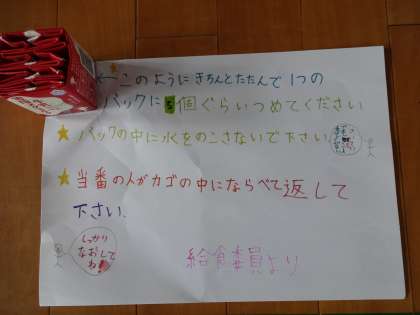 ★このようにきちんとたたんで1つの
パックに5個ぐらいつめてください
★パックの中に水をのこさないで下さい
★当番の人がカゴの中にならべて返して
下さい.
しっかり
なおして
ね!
給食委員より